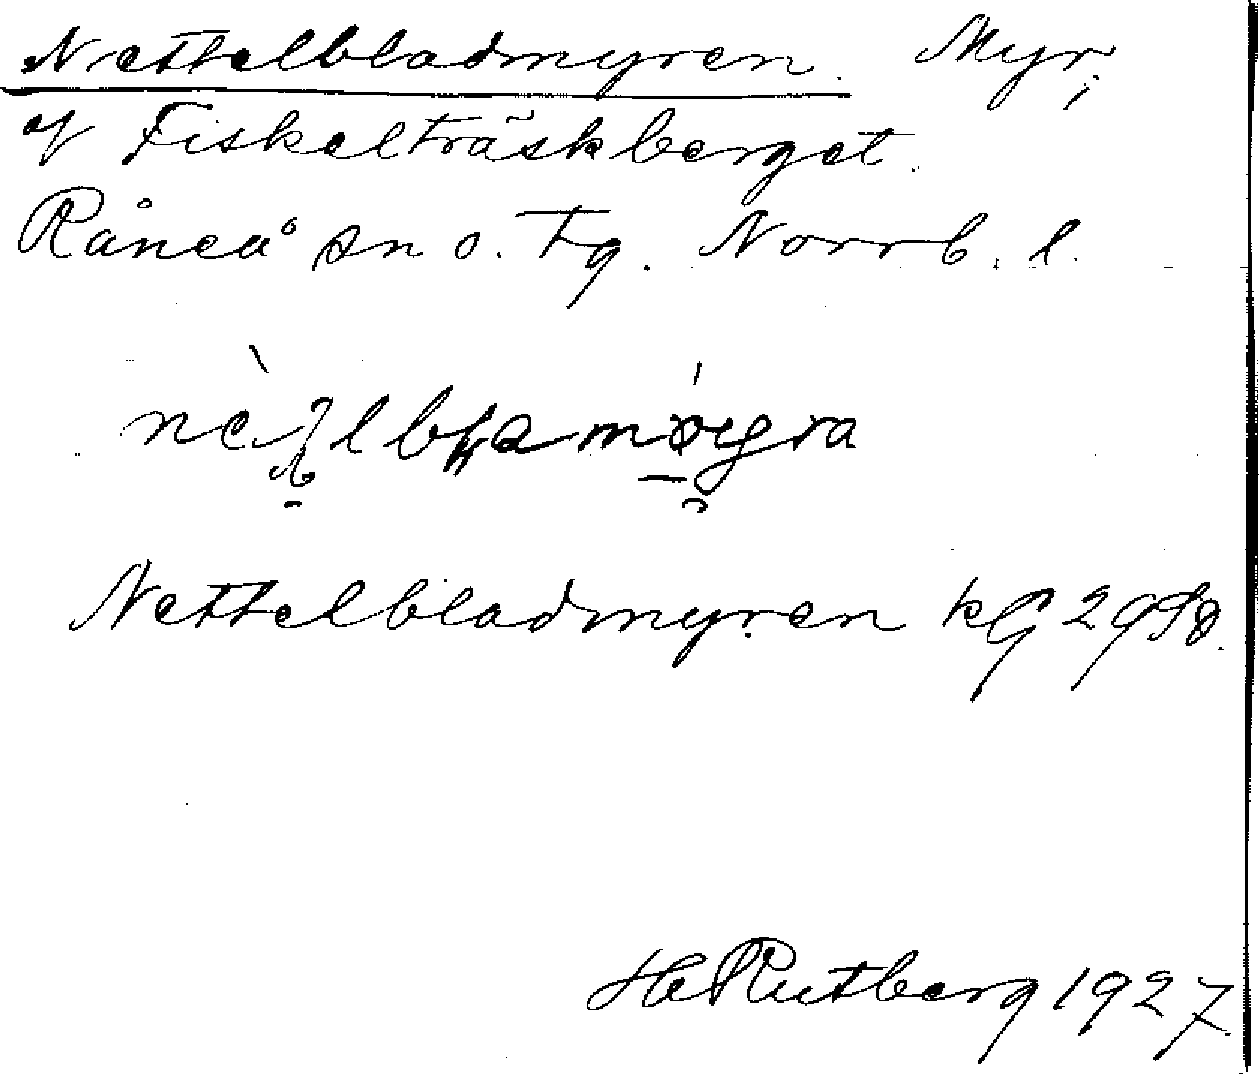 Nettelbladmyren. Myr,
af Fiskelträskberget.
Råneå sn o. tg. Norrb. l.
Nettelbladmyren kG 29
H Rutberg 1927.